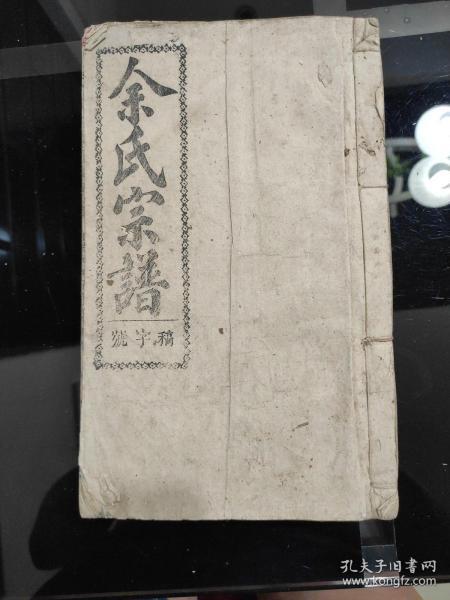 余氏宗譜
稿字號
孔夫子旧书网
www.kongfz.com